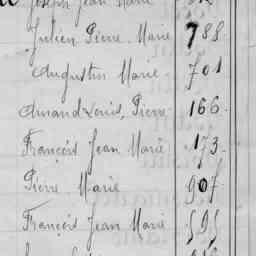 Joseph Jean Marie
Julien Pierre Marie 788
Augustin Marie 701
Amand Louis, Pierre 166
François Jean Marie 173
Pierre Marie 907
François Jean Marie 595